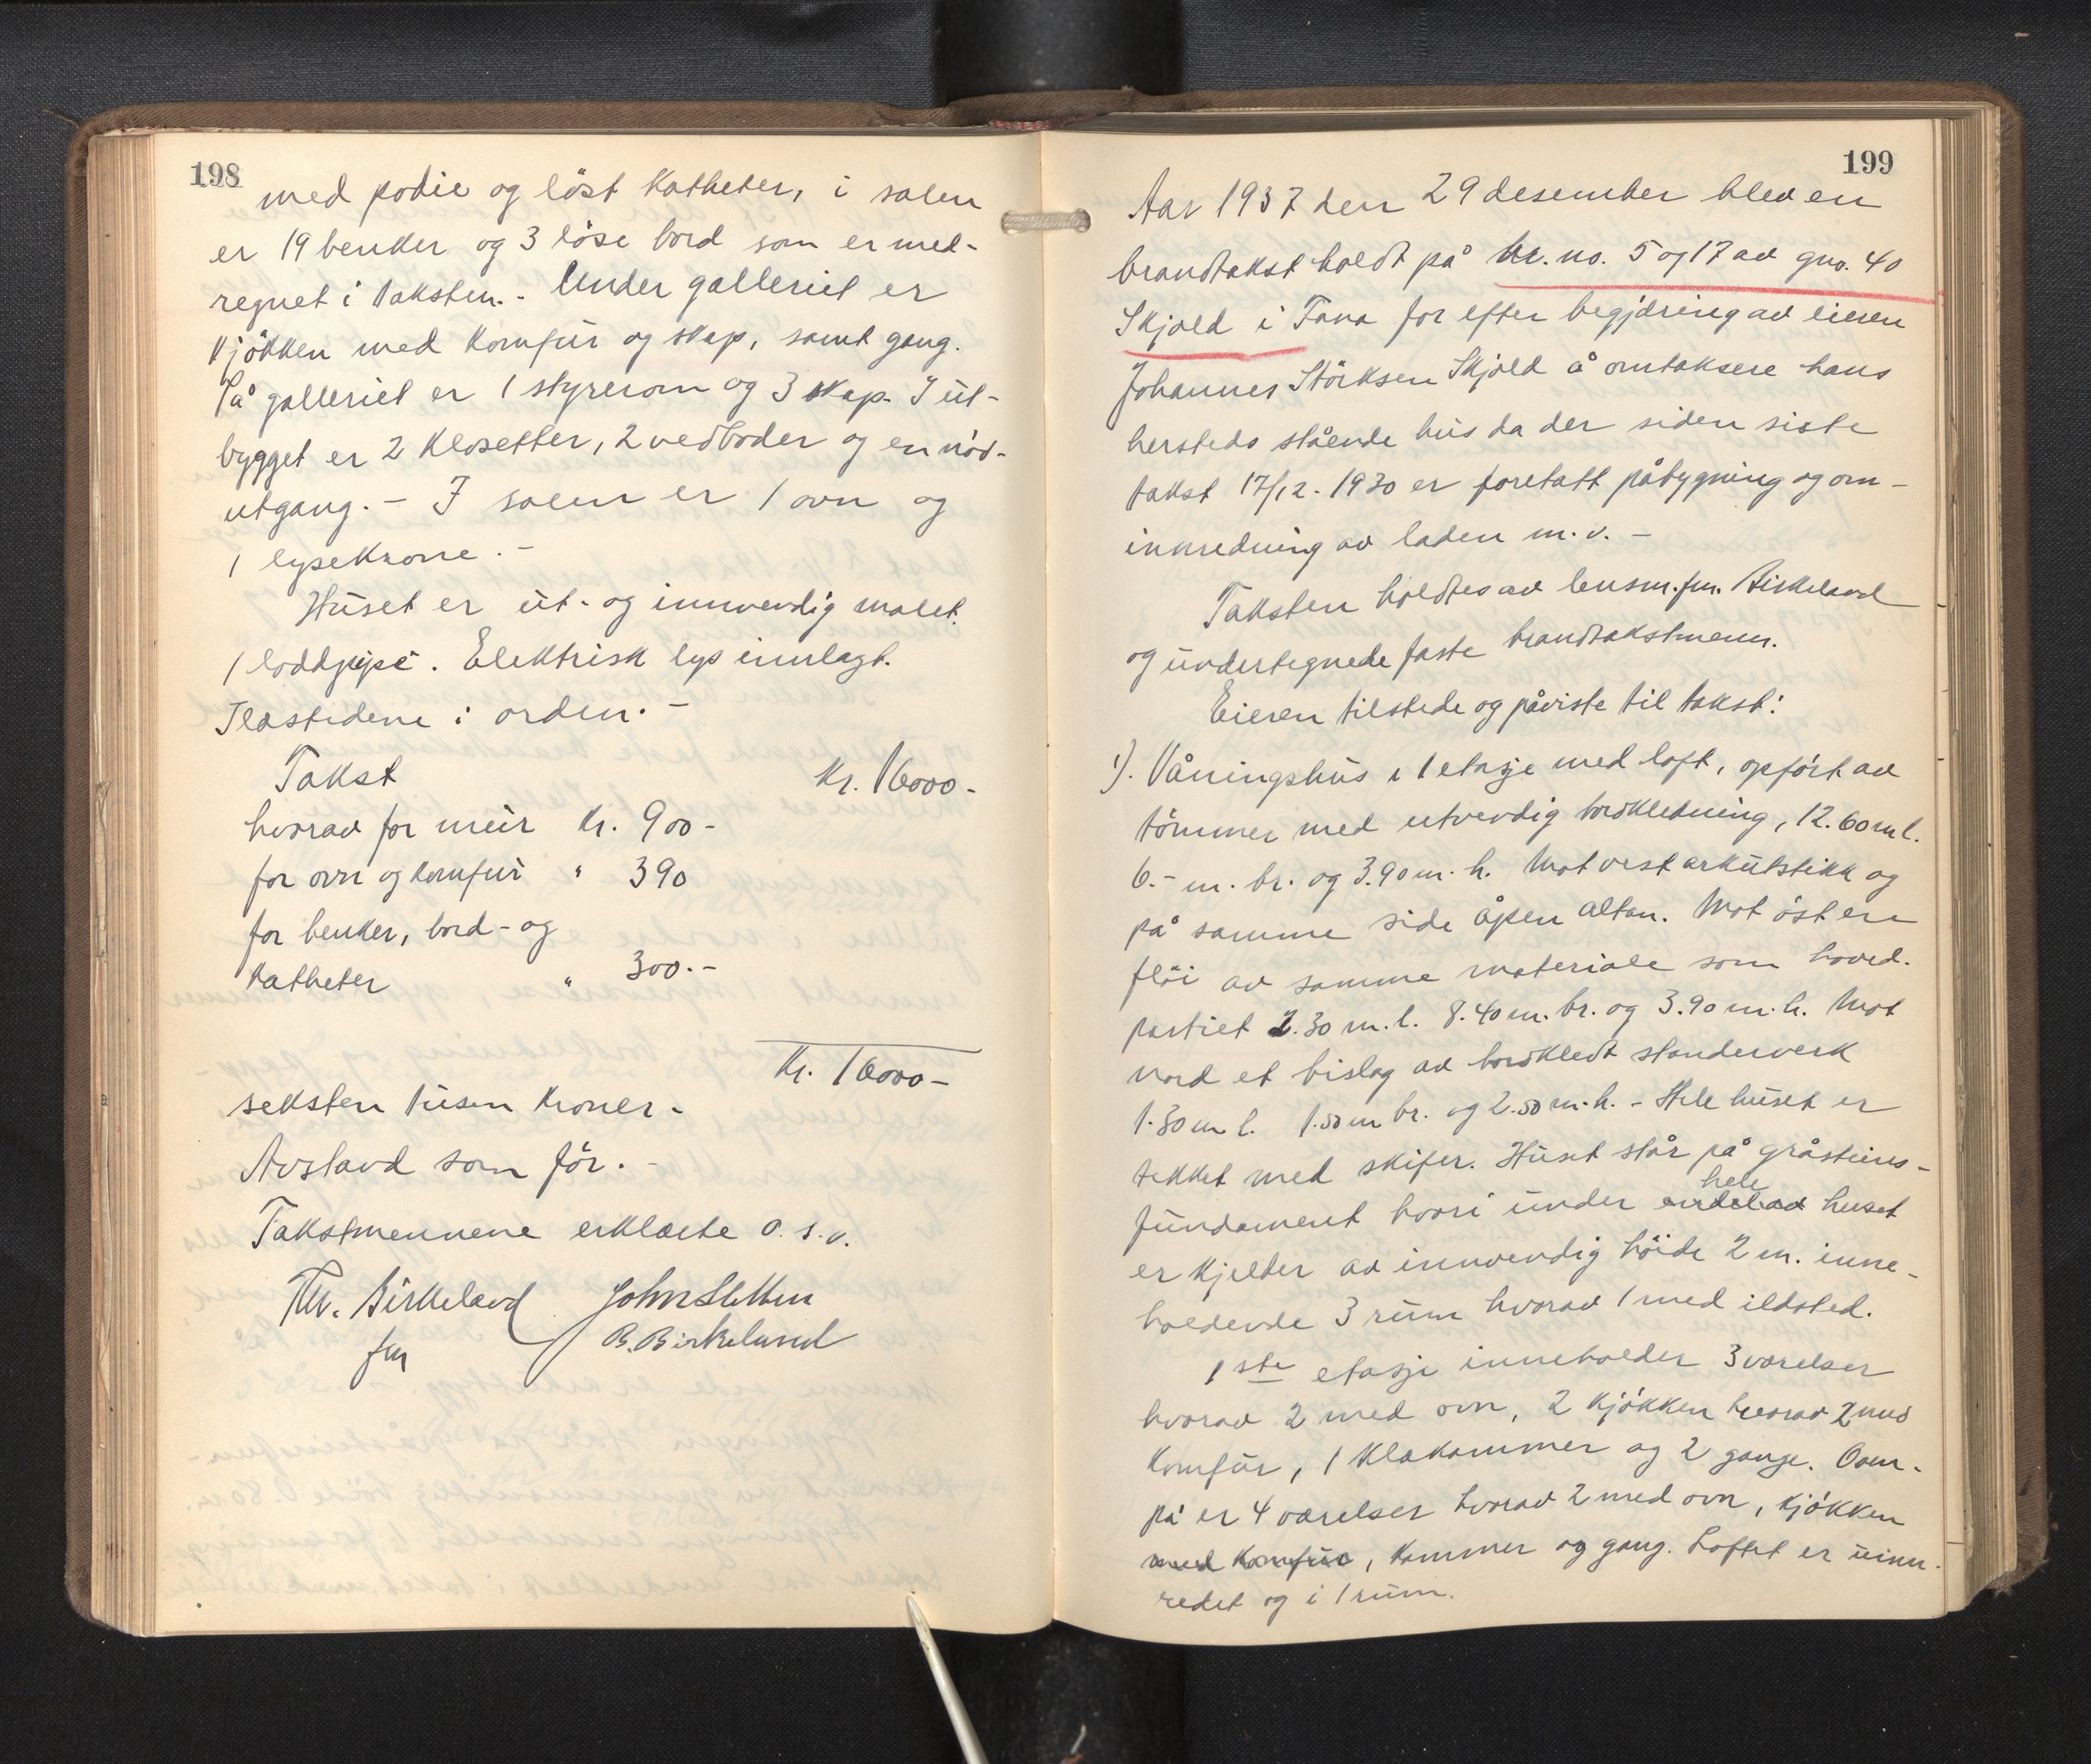 198
med podie og löst Katheter, i salen
er 19 benker og 3 löse bord som er med-
regnet i taksten. - Under galleriet er
Kjökken med Komfur og skap, samt gang.
På galleriet er 1 styrerom og 3 skap. I ut-
bygget er 2 Klosetter, 2 vedboder og en nöd-
utgang. - I salen er 1 ovn og
1 lysekrone. -
Huset er ut- og innvendig malet.
1 loddpipe. Elektrisk lys innlagt.
Ildstedene i orden. -
Takst Kr. 16000.-
hvorav for muir Kr. 900-
for ovn og Komfur " 390
for benker, bord- og
Katheter " 300.-
Kr. 16000-
seksten tusen Kroner.
Avstand som för. -
Takstmennene erklærte o. s. v.
Th. Birkeland John Sletten
fm B. Birkelund
199
Aar 1937 den 29 desember blev en
brandtakst holdt på br. no. 5 og 17 av gno. 40
Skjold i Fana for efter begjæring av eieren
Johannes Störksen Skjold å omtaksere hans
hersteds stående hus da der siden siste
takst 17/12. 1930 er foretatt påbygning og om-
innredning av laden m. v. -
Taksten holdtes av lensm. fm. Birkeland
og undertegnede faste brandtakstmenn.
Eieren tilstede og påviste til takst:
1). Våningshus i 1 etasje med loft, opfört av
tömmer med utvendig bordkledning, 12.60 m l.
6.- m. br. og 3.90 m. h. Mot vest arkutstikk og
på samme side åpen altan. Mot öst en
flöi av samme materiale som hoved-
partiet 2.30 m. l. 8.40 m. br. og 3.90 m. h. Mot
nord et bislag av bordkledt standerverk
1.30 m l. 1.50 m br. og 2.50 m. h. - Hele huset er
tekket med skifer. Huset står på gråsteins-
fundament hvori under hele huset
er Kjelder av innvendig höide 2 m. inne-
holdende 3 rum hvorav 1 med ildsted.
1ste etasje inneholder 3 værelser
hvorav 2 med ovn, 2 Kjökken hvorav 2 med
Komfur, 1 Klækammer og 2 gange. Oven-
på er 4 værelser hvorav 2 med ovn, Kjökken
med Komfur, Kammer og gang. Loftet er uinn-
redet og i 1 rum.